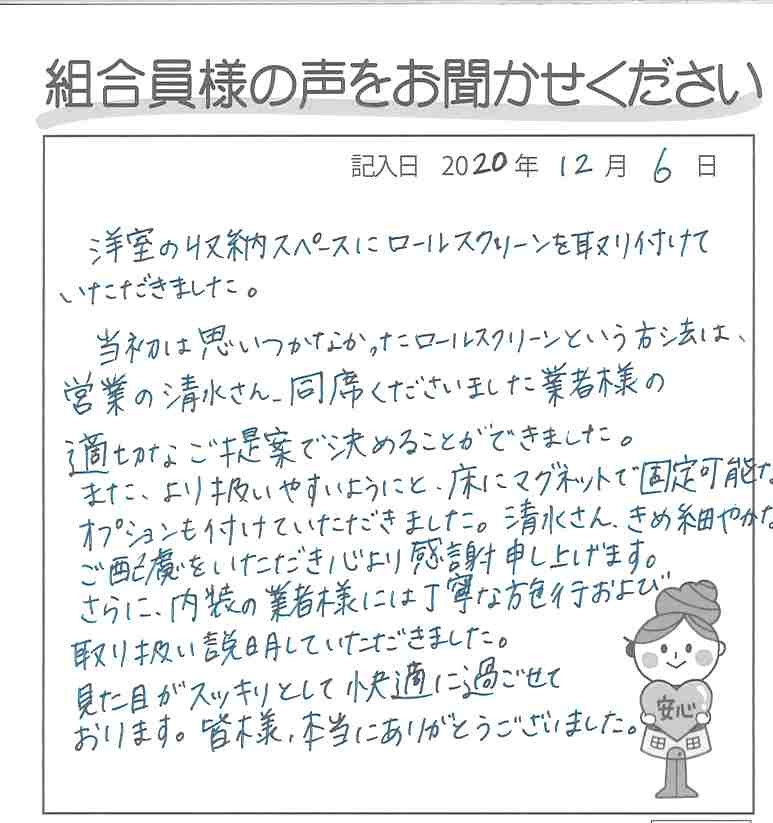 組合員様の声をお聞かせください
記入日 2020年 12月 6日
洋室の収納スペースにロールスクリーンを取り付けて
いただきました。
当初は思いつかなかったロールスクリーンという方法は、
営業の清水さん、同席くださいました業者様の
適切なご提案で決めることができました。
また、より扱いやすいようにと、床にマグネットで固定可能な
オプションも付けていただきました。清水さん、きめ細やかな
ご配慮をいただき心より感謝申し上げます。
さらに、内装の業者様には丁寧な施行および
取り扱い説明していただきました。
見た目がスッキリとして快適に過ごせて
おります。皆様、本当にありがとうございました。
安心